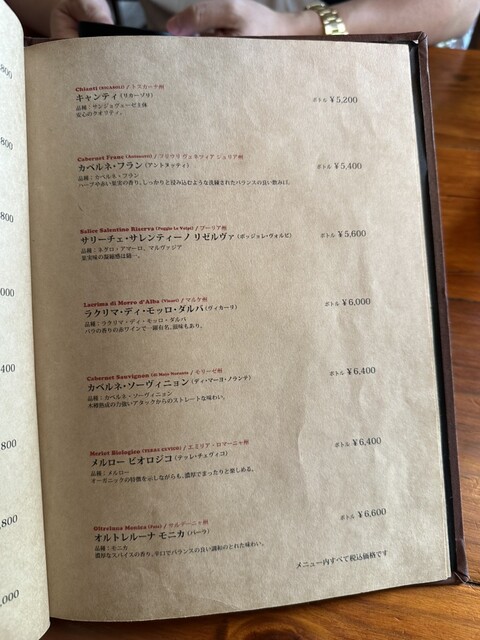 800
800
800
000
400
800
,800
,000
Chianti (RICASOLI) / トスカーナ州
キャンティ (リカーゾリ)
ボトル ¥5,200
品種：サンジョヴェーゼ主体
安心のクオリティ。
Cabernet Franc (Antonutti) / フリウリ ヴェネツィア ジュリア州
カベルネ・フラン (アントネッティ)
ボトル ¥5,400
品種：カベルネ・フラン
ハーブや赤い果実の香り。しっかりと染み込むような洗練されたバランスの良い飲みqち。
Salice Salentino Riserva (Poggio le Volpi) / プーリア州
サリーチェ・サレンティーノ リゼルヴァ (ポッジョレ・ヴォルピ)
ボトル ¥5,600
品種：ネグロ・アマーロ、マルヴァジア
果実味の凝縮感は随一。
Lacrima di Morro d'Alba (Vicari) / マルケ州
ラクリマ・ディ・モッロ・ダルバ (ヴィカーリ)
ボトル ¥6,000
品種：ラクリマ・ディ・モッロ・ダルバ
バラの香りの赤ワインで一躍有名。滋味もあり。
Cabernet Sauvignon (Di Majo Norante) / モリーゼ州
カベルネ・ソーヴィニョン (ディ・マーヨ・ノランテ)
ボトル ¥6,400
品種：カベルネ・ソーヴィニョン
木樽熟成の力強いアタックからのストレートな味わい。
Merlot Biologico (TERRE CEVICO) / エミリア・ロマーニャ州
メルロー ビオロジコ (テッレ・チェヴィコ)
ボトル ¥6,400
品種：メルロー
オーガニックの特徴を示しながらも、濃厚でまったりと楽しめる。
Oltreluna Monica (Pala) / サルデーニャ州
オルトレルーナ モニカ (パーラ)
ボトル ¥6,600
品種：モニカ
濃厚なスパイスの香り。辛口でバランスの良い調和のとれた味わい。
メニュー内すべて税込価格です